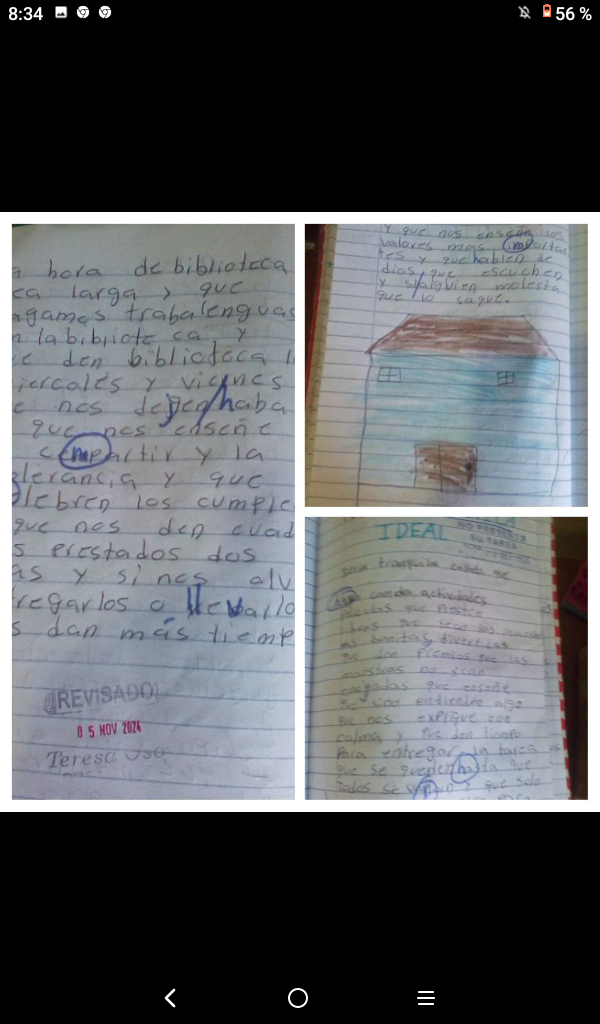 8:34
56 %
a hora de biblioteca
ca larga y que
ngamos trabalenguas
n la biblioteca y
e den biblioteca
iercoles y viernes
e nos dejen haba
que nos enseñe
compartir y la
lerancia y que
lebren los cumple
que nos den cuad
s prestados dos
as y si nos olv
regarlos o llevallo
s dan más tiemp
¡REVISADO!
05 NOV 2024
Teresa
y que nos enseña los
valores mas importan
tes y que hablen de
dios, que escuchen
y si alguien molesta
que lo saque.
IDEAL
NO PRESENTÓ
SU TAREA
sera tranquila
actividades
que
que sean las maest
bonitas, divertidas
que den premios que las
maestras no sean
que enseñe
que sino entiendo algo
que nos explique con
calma y que den tiempo
para entregar la tarea
que se queden hasta que
todos se y que solo